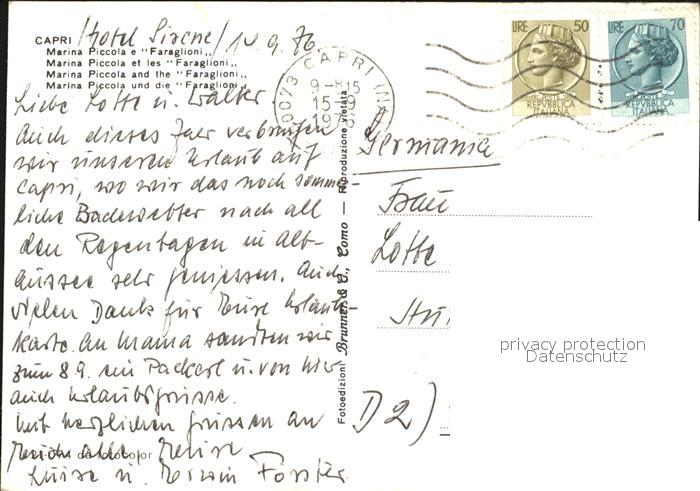 Hotel Sirene / 14.9.76
CAPRI
Marina Piccola e "Faraglioni"
Marina Piccola et les "Faraglioni"
Marina Piccola and the "Faraglioni"
Marina Piccola und die "Faraglioni"
Liebe Lotte u. Walter
Auch dieses Jahr verbringen
wir unseren Urlaub auf
Capri, wo wir das noch sommer-
liche Badewetter nach all
den Regentagen in Alt-
aussee sehr geniessen. Auch
vielen Dank für Eure Urlaubs-
karte. An Mama sandten wir
zum 8.9. ein Packerl u. von hier
auch Urlaubsgrüsse.
Mit herzlichen Grüssen an
Euch alle, Eure
Luise u. Erwin Forster
Fotoedizioni Brunner & C., Como — Riproduzione vietata
80073 CAPRI (NA)
15-9
1976
LIRE 50
REPVBBLICA
ITALIANA
LIRE 70
REPVBBLICA
ITALIANA
Germania
Frau
Lotte
D 2)
privacy protection
Datenschutz